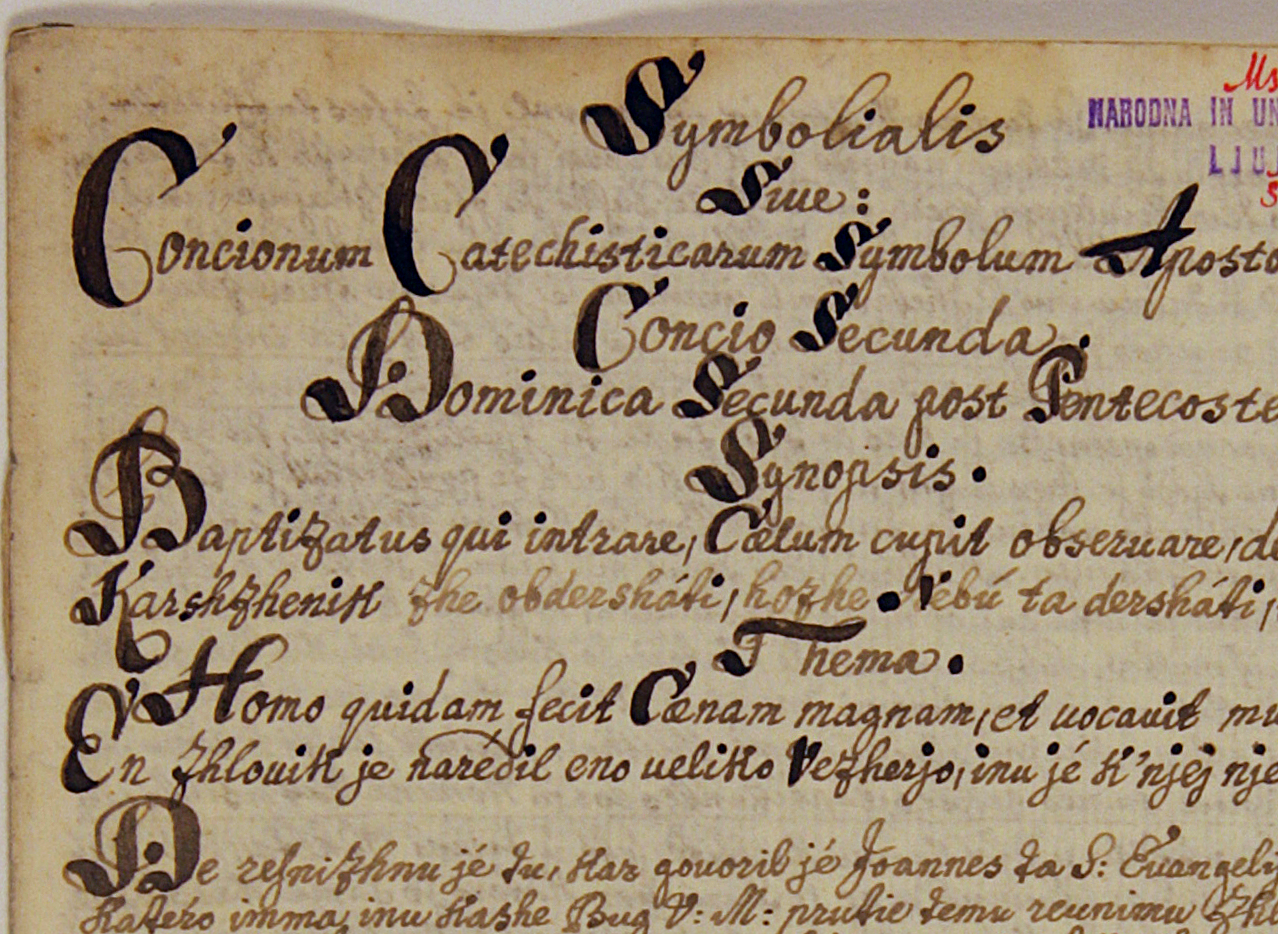 Symbolialis
Ms
NARODNA IN UN
LJUJ
Siue:
Concionum Catechisticarum Symbolum Aposto
Concio Secunda.
Dominica Secunda post Pentecoste
Synopsis.
Baptizatus qui intrare, Cœlum cupit obseruare, de
Karshzhenik zhe obdersháti, hozhe Nebú ta dersháti,
Thema.
Homo quidam fecit Cœnam magnam, et uocauit mu
En zhlouik je narédil eno ueliko Vezherjo, inu jé k'njéj nje
De resnizhnu jé tu, kar gouoril jé Joannes ta S: Euangely
katéro imma, inu kashe Bug V: M: prutie temu reunimu